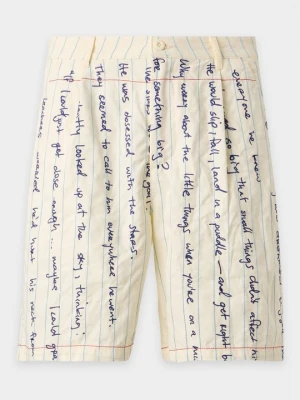 everyone he knew
so big that small things didn't affect hi
He would slip, fall, land in a puddle — and get right b
Why worry about the little things when you're on a
for something big?
He was obsessed with the stars.
They seemed to call to him everywhere he went.
antly looked up at the sky, thinking:
I could just get close enough... maybe I could
he'd hurt his neck from